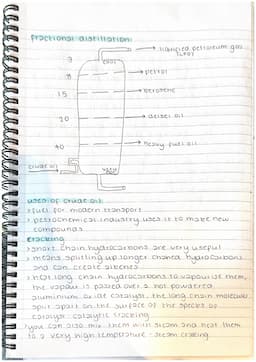 fractional distillation:
3
cool
→ liquified petroleum gas
(LPG)
8
→ petrol
15
→ kerosene
20
→ deisel oil
40
→ heavy fuel oil
crude oil
uses of crude oil:
• fuel for modern transport
• petrochemical industry uses it to make new
compounds.
cracking
• short chain hydrocarbons are very useful
• means splitting up longer chained hydrocarbons
and can create alkenes
• heat long chain hydrocarbons to vapourise them,
the vapour is passed over a hot powered
aluminium oxide catalyst. the long chain molecules
split apart on the surface of the specks of
catalyst - catalytic cracking
• you can also mix them with steam and heat them
to a very high temperature - steam cracking.